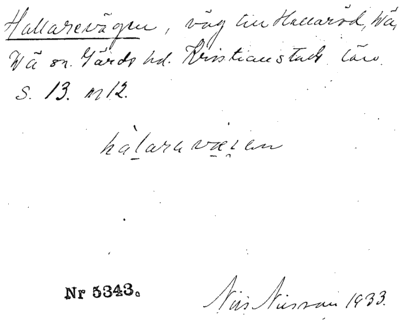 Hallarevägen, väg till Hallaröd, Vä,
Vä sn. Gärds hd. Kristianstads län.
S. 13. N 12.
hàlaravä̀ien
Nr 5343.
Nils Nilsson 1933.